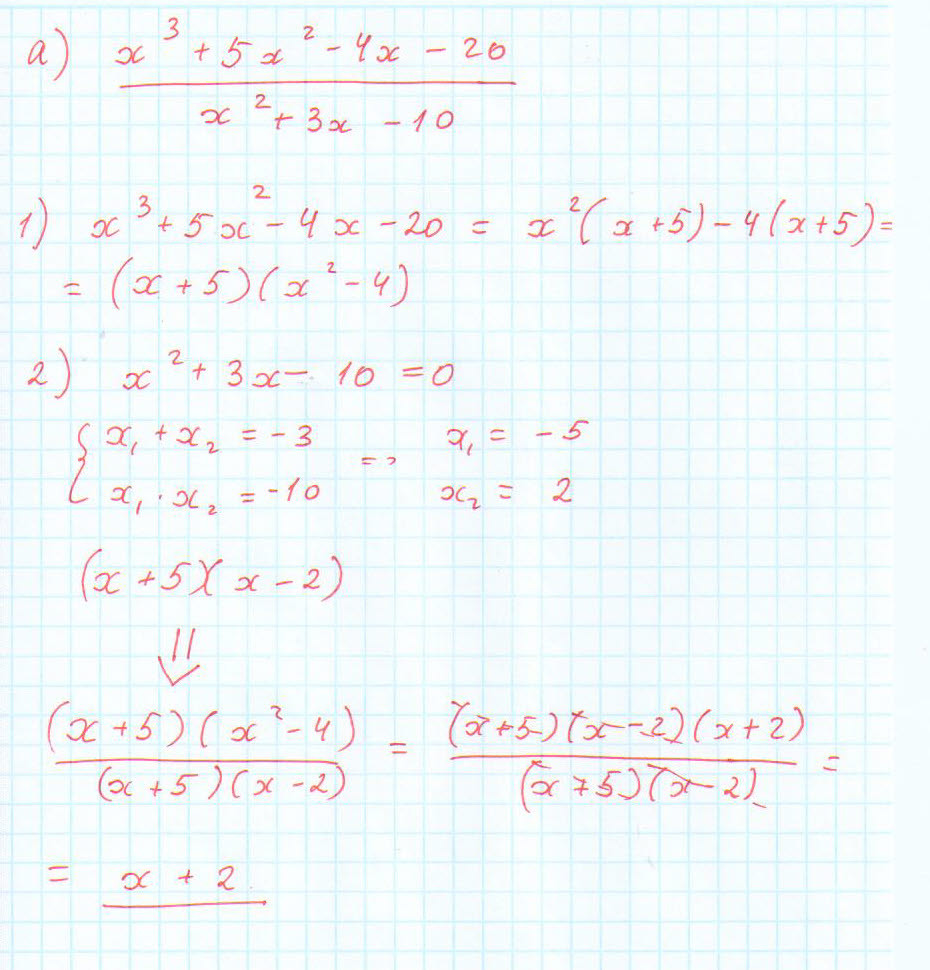 а) x³ + 5x² - 4x - 20
x² + 3x - 10
1) x³ + 5x² - 4x - 20 = x²(x + 5) - 4(x + 5) =
= (x + 5)(x² - 4)
2) x² + 3x - 10 = 0
{ x₁ + x₂ = -3 => x₁ = -5
x₁ · x₂ = -10 x₂ = 2
(x + 5)(x - 2)
⇓
(x + 5)(x² - 4) / (x + 5)(x - 2) = (x + 5)(x - 2)(x + 2) / (x + 5)(x - 2) =
= x + 2